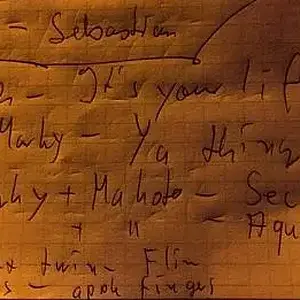 - Sebastian
- It's your lif
Marky - Ya thing
hy + Mahoto - Sec
+ " - Aqu
twin - Flin
s - apok finger